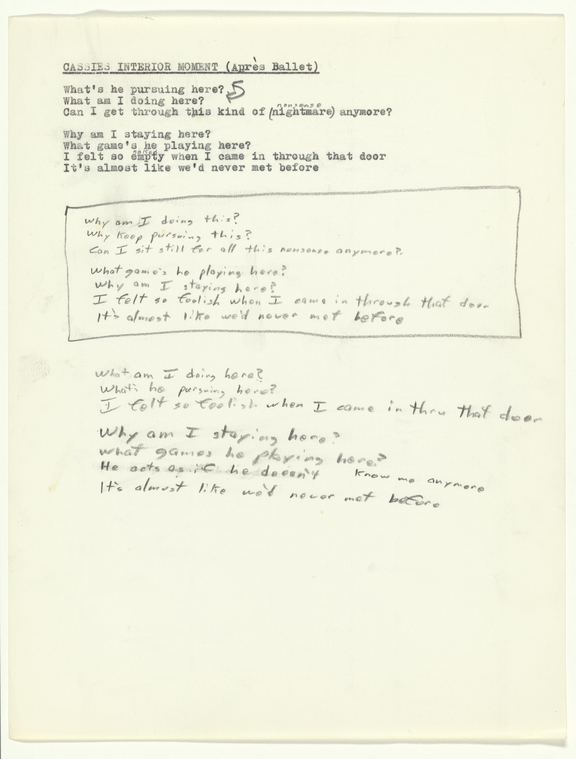 CASSIES INTERIOR MOMENT (Après Ballet)
What's he pursuing here?
What am I doing here?
nonsense
Can I get through this kind of (nightmare) anymore?
Why am I staying here?
What game's he playing here?
I felt so empty when I came in through that door
It's almost like we'd never met before
Why am I doing this?
Why keep pursuing this?
Can I sit still for all this nonsense anymore?
What game's he playing here?
Why am I staying here?
I felt so foolish when I came in through that door
It's almost like we'd never met before
What am I doing here?
What's he pursuing here?
I felt so foolish when I came in thru that door
Why am I staying here?
what games he playing here?
He acts as if he doesn't know me anymore
It's almost like we'd never met before